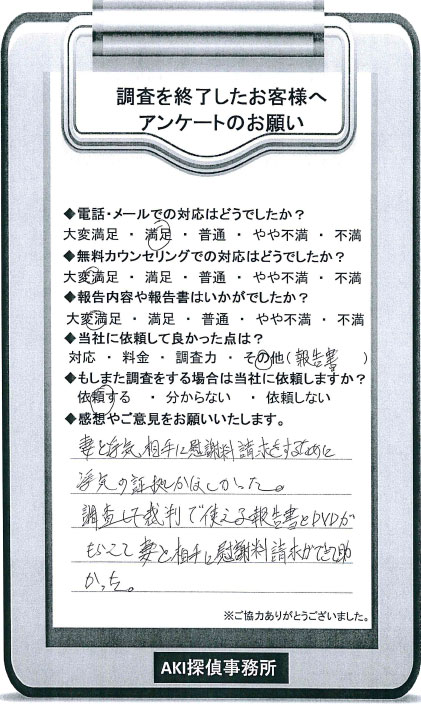 調査を終了したお客様へ
アンケートのお願い
◆電話・メールでの対応はどうでしたか？
大変満足 ・ 満足 ・ 普通 ・ やや不満 ・ 不満
◆無料カウンセリングでの対応はどうでしたか？
大変満足 ・ 満足 ・ 普通 ・ やや不満 ・ 不満
◆報告内容や報告書はいかがでしたか？
大変満足 ・ 満足 ・ 普通 ・ やや不満 ・ 不満
◆当社に依頼して良かった点は？
対応 ・ 料金 ・ 調査力 ・ その他( 報告書 )
◆もしまた調査をする場合は当社に依頼しますか？
依頼する ・ 分からない ・ 依頼しない
◆感想やご意見をお願いいたします。
妻と浮気相手に慰謝料請求をするために
浮気の証拠がほしかった。
調査して裁判で使える報告書とDVDが
もらえて妻と相手に慰謝料請求ができて助
かった。
※ご協力ありがとうございました。
AKI探偵事務所